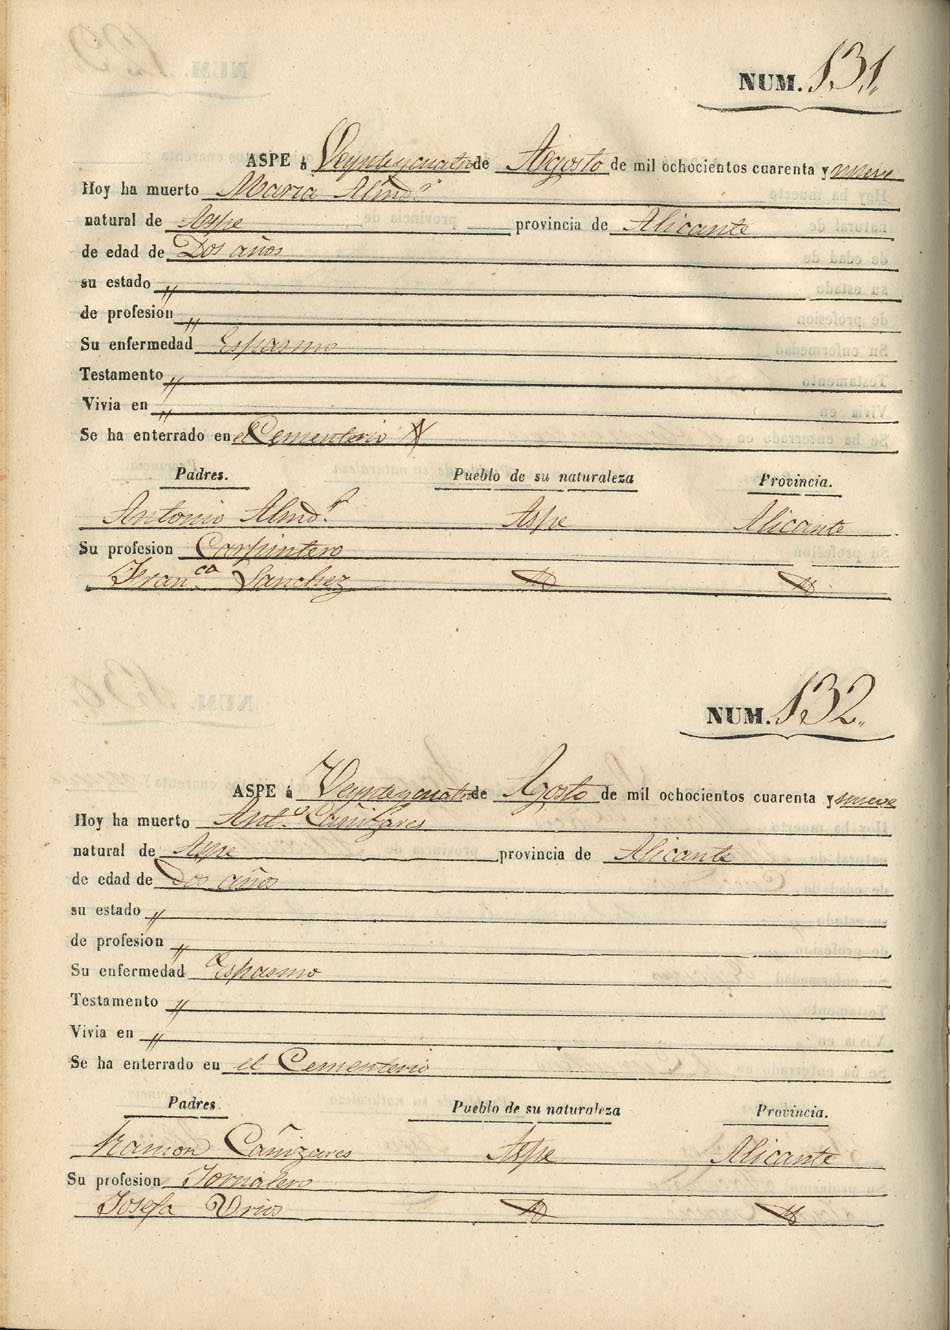 NUM. 131.
ASPE á Veynteycuatro de Agosto de mil ochocientos cuarenta y nueve
Hoy ha muerto Maria Almd.ª
natural de Aspe provincia de Alicante
de edad de Dos años
su estado "
de profesion "
Su enfermedad Espasmo
Testamento "
Vivia en "
Se ha enterrado en el Cementerio
Padres. Pueblo de su naturaleza Provincia.
Antonio Almd.ª Aspe Alicante
Su profesion Carpintero
Fran.ca Sanchez
NUM. 132.
ASPE á Veynteycuatro de Agosto de mil ochocientos cuarenta y nueve
Hoy ha muerto Ant.º Cañizares
natural de Aspe provincia de Alicante
de edad de Dos años
su estado "
de profesion "
Su enfermedad Espasmo
Testamento "
Vivia en "
Se ha enterrado en el Cementerio
Padres. Pueblo de su naturaleza Provincia.
Ramon Cañizares Aspe Alicante
Su profesion Jornalero
Josefa Urios